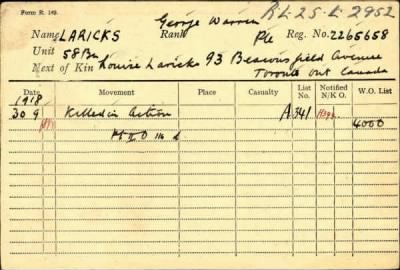 Form R. 149.
George Warren RL-25-L-2952
Name LARICKS Rank Pte Reg. No. 2265658
Unit 58 Bn
Next of Kin Louise Laricks 93 Beaconsfield Avenue
Toronto Ont Canada
Date Movement Place Casualty List No. Notified N/K O. W.O. List
1918
30 9 Killed in Action A341 4000
Pt II O 116 d